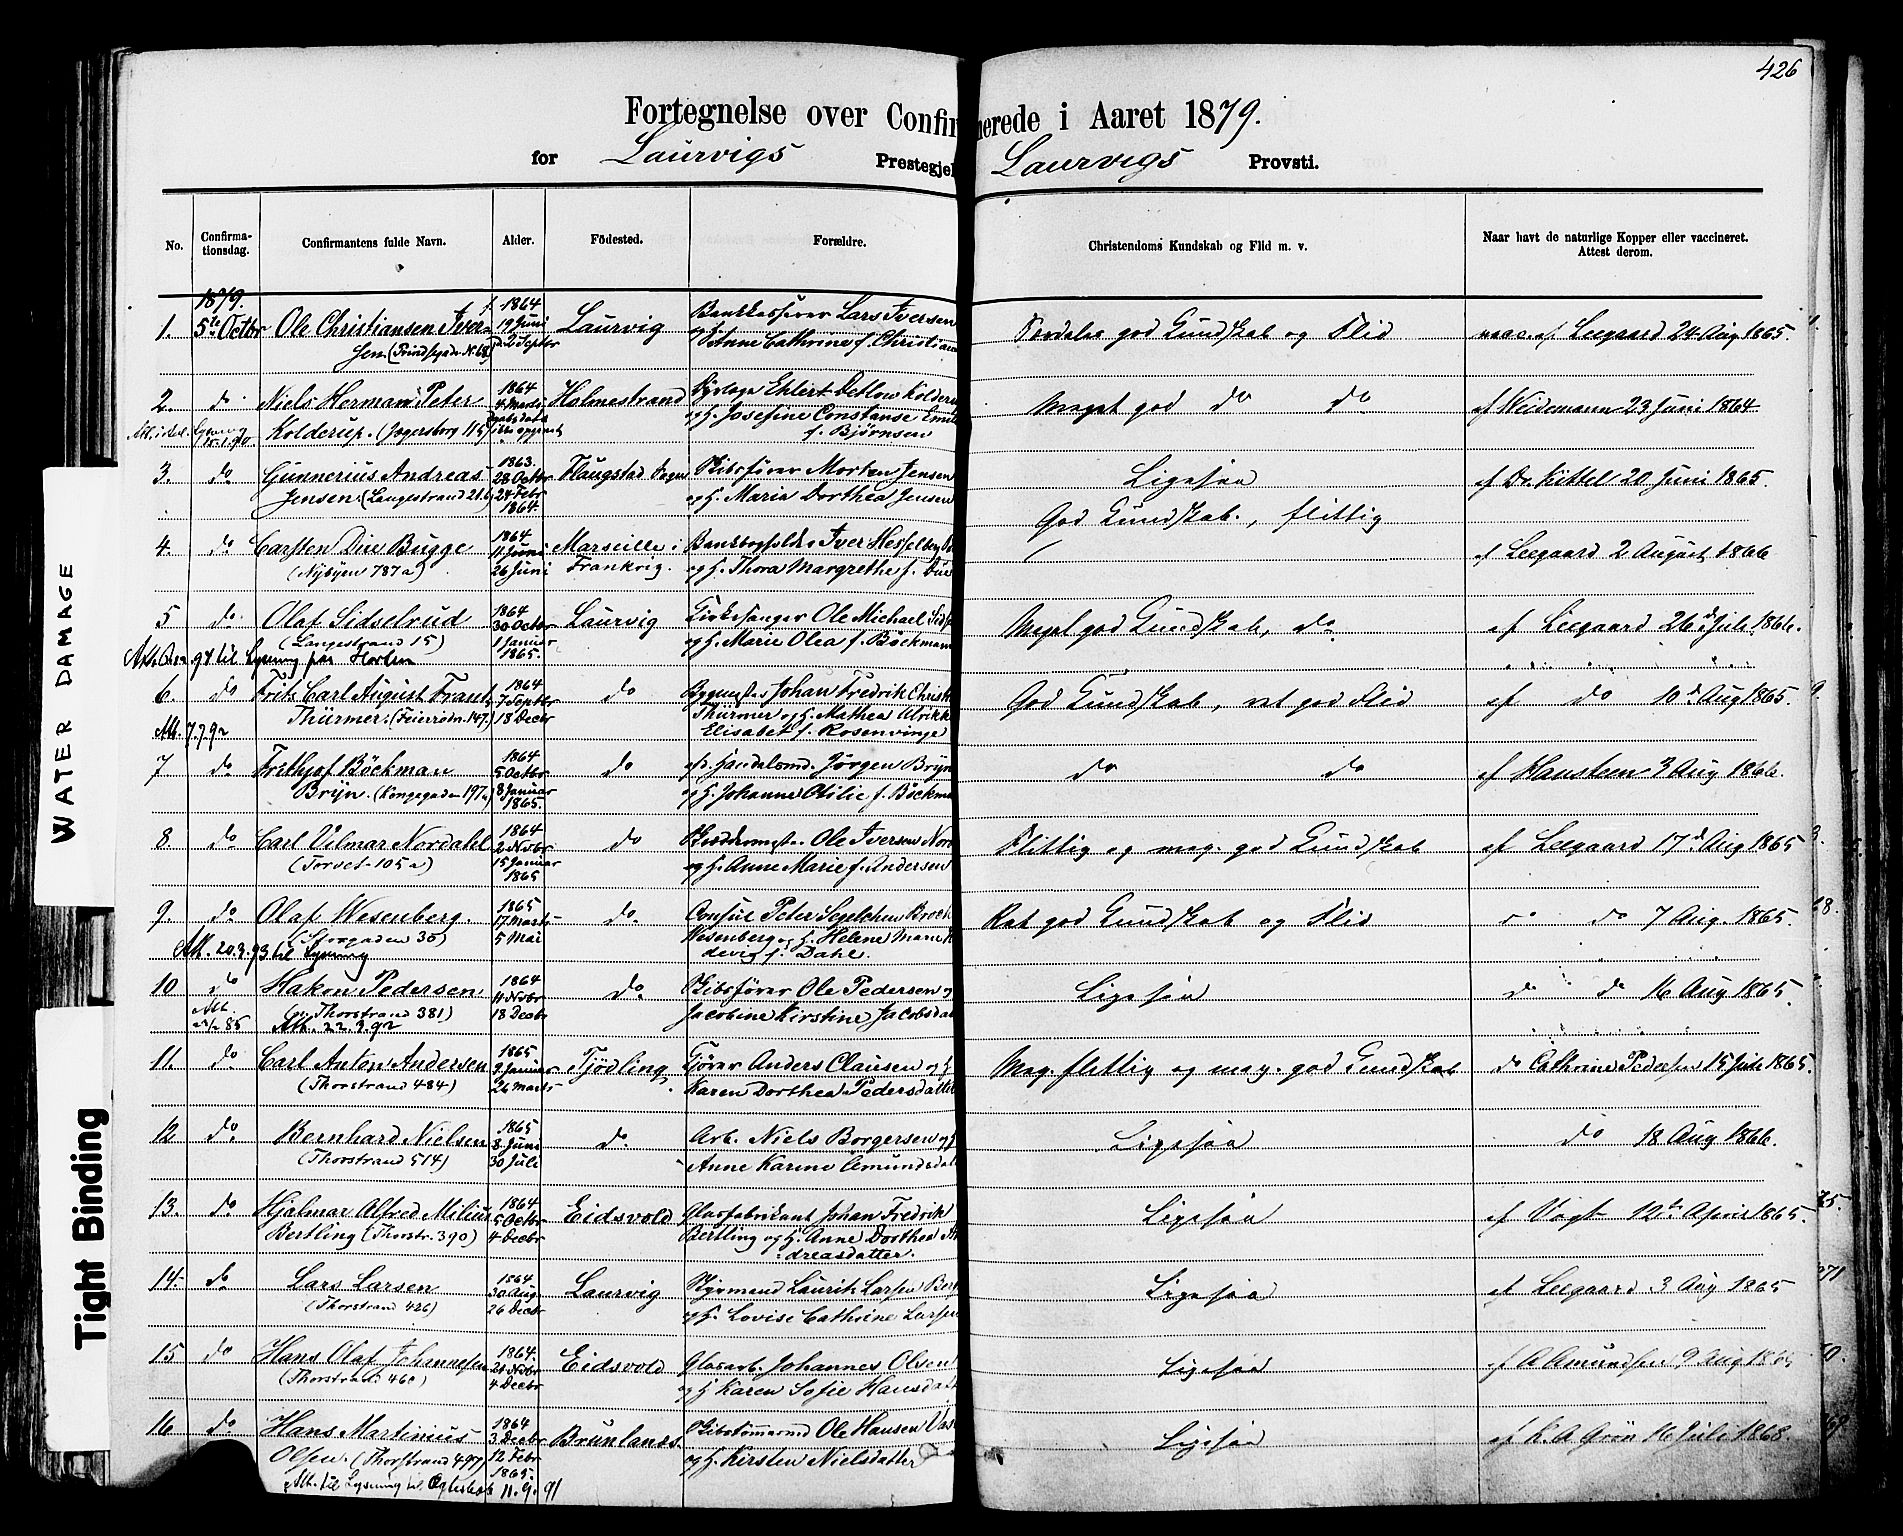 426
Fortegnelse over Confirmerede i Aaret 1879.
for Laurvigs Prestegjel Laurvigs Provsti.
No. Confirmationsdag. Confirmantens fulde Navn. Alder. Födested. Forældre. Christendoms Kundskab og Flid m. v. Naar havt de naturlige Kopper eller vaccineret. Attest derom.
1879. 1864 Bankkasserer Lars Iversen
1. 5te Octbr Ole Christiansen Iver- 19 Juni Laurvig og h. Anne Cathrine f. Christian Særdeles god Kundskab og Flid vacc. af Leegaard 24 Aug 1865.
sen (Prindsegaden N. 68) 2 Septbr
2. do Niels Herman Peter 1864 Holmestrand Ehlert Detlow Kolderu Meget god do do af Weidemann 23 Juni 1864
Kolderup. (Jegersborg 115) og h. Josefine Constanse Emilie
f. Bjørnsen
3. do Gunnerius Andreas 1863. 28 Octbr Haugstad Sogn Skibsfører Morten Jensen Ligesaa af Dr. Kittel 20 Juni 1865.
Jensen (Langestrand 216) 24 Febr 1864 og h. Maria Dorthea Jensen
God Kundskab, flittig
4. do Carsten Due Bugge 1864 11 Juni Marseille i Bankbogholder Iver Hesselberg af Leegaard 2 August 1866
(Nybyen 787a) 26 Juni Frankrig. og h. Thora Margrethe f. Due
5 do Olaf Sidselrud 1864 30 Octbr Laurvig Kirkesanger Ole Michael Meget god Kundskab, do af Leegaard 26d Juli 1866.
(Langestrand 15) 1 Januar 1865. og h. Marie Olea f. Böckmann
94 til Lysning paa Horten
6. do Frits Carl August Frants 1864 7 Septbr do Bygmester Johan Fredrik Christ God Kundskab, ret god Flid af do 10d Aug 1865.
Thürmer. (Feierodn 147.) 18 Decbr Thürmer og h. Mathea Ulrikke
Att. 7.7.92 Elisabet f. Rosenvinge
7 do Frithjof Böckman 1864 5 Octbr do Handelsmd. Jörgen Bryn do do af Hansteen 3 Aug 1866.
Bryn. (Kongegaden 197a) 8 Januar 1865. og h. Johanne Otilie f. Böckma
8. do Carl Vilmar Nordahl 1864 2 Novbr do Ole Iversen Nord Flittig og meg. god Kundskab af Leegaard 17d Aug 1865
(Torvet 105a) 15 Januar 1865 og h. Anne Marie f. Andersen
9. do Olaf Wesenberg. 1865 17 Marts do Consul Peter Segelcken Brock Ret god Kundskab og Flid do do 7 Aug. 1865
5 Mai Wesenberg og h. Helene Marie H
Att. 20.3.93 til Lysning devig f. Dahl.
10 do Hakon Pedersen 1864 11 Novbr do. Skibsfører Ole Pedersen og Ligesaa do do 16 Aug 1865.
(Thorstrand 381) 18 Decbr Jacobine Kirstine Jacobsdat
Att. 22.3.92
11. do Carl Anton Andersen 1865 9 Januar Tjödling Kjører Anders Clausen og h Meg. flittig og meg. god Kundskab do Cathrine Pedersen 15 Juli 1865.
(Thorstrand 484) 26 Marts Karen Dorthea Pedersdatter
12 do Bernhard Nielsen 1865 8 Juni do. Arb. Niels Borgersen og h Ligesaa do 18 Aug 1866.
(Thorstrand 514) 30 Juli Anne Karine Amundsdatt
13. do Hjalmar Alfred Milius 1864 5 Octbr Eidsvold Glasfabrikant Johan Fredrik Ligesaa af Vogt 12te April 1865.
Bertling (Thorstr. 390) 4 Decbr Bertling og h. Anne Dorthea An
dreasdatter.
14. do Lars Larsen 1864 30 Aug Laurvig Styrmand Laurits Larsen Ligesaa af Leegaard 3 Aug 1865
(Thorstrand 426) 26 Decbr og h. Lovise Cathrine Larsen
15 do Hans Olaf Johannesen 1864. Eidsvold Glasarb. Johannes Olsen Ligesaa af A Amundsen 9 Aug
(Thorstrand 460) 4 Decbr og h Karen Sofie Hansdatt
16 do Hans Martinius 1864 3 Decbr Brunlanes. Skibstømmermd Ole Hansen Ligesaa af H. A Grøn 16 Juli 1868.
Olsen. (Thorstrand 497) 12 Febr 1865. og h. Kirsten Nielsdatter
Att. til Lysning til Egteskab 11.9.91
WATER DAMAGE
Tight Binding